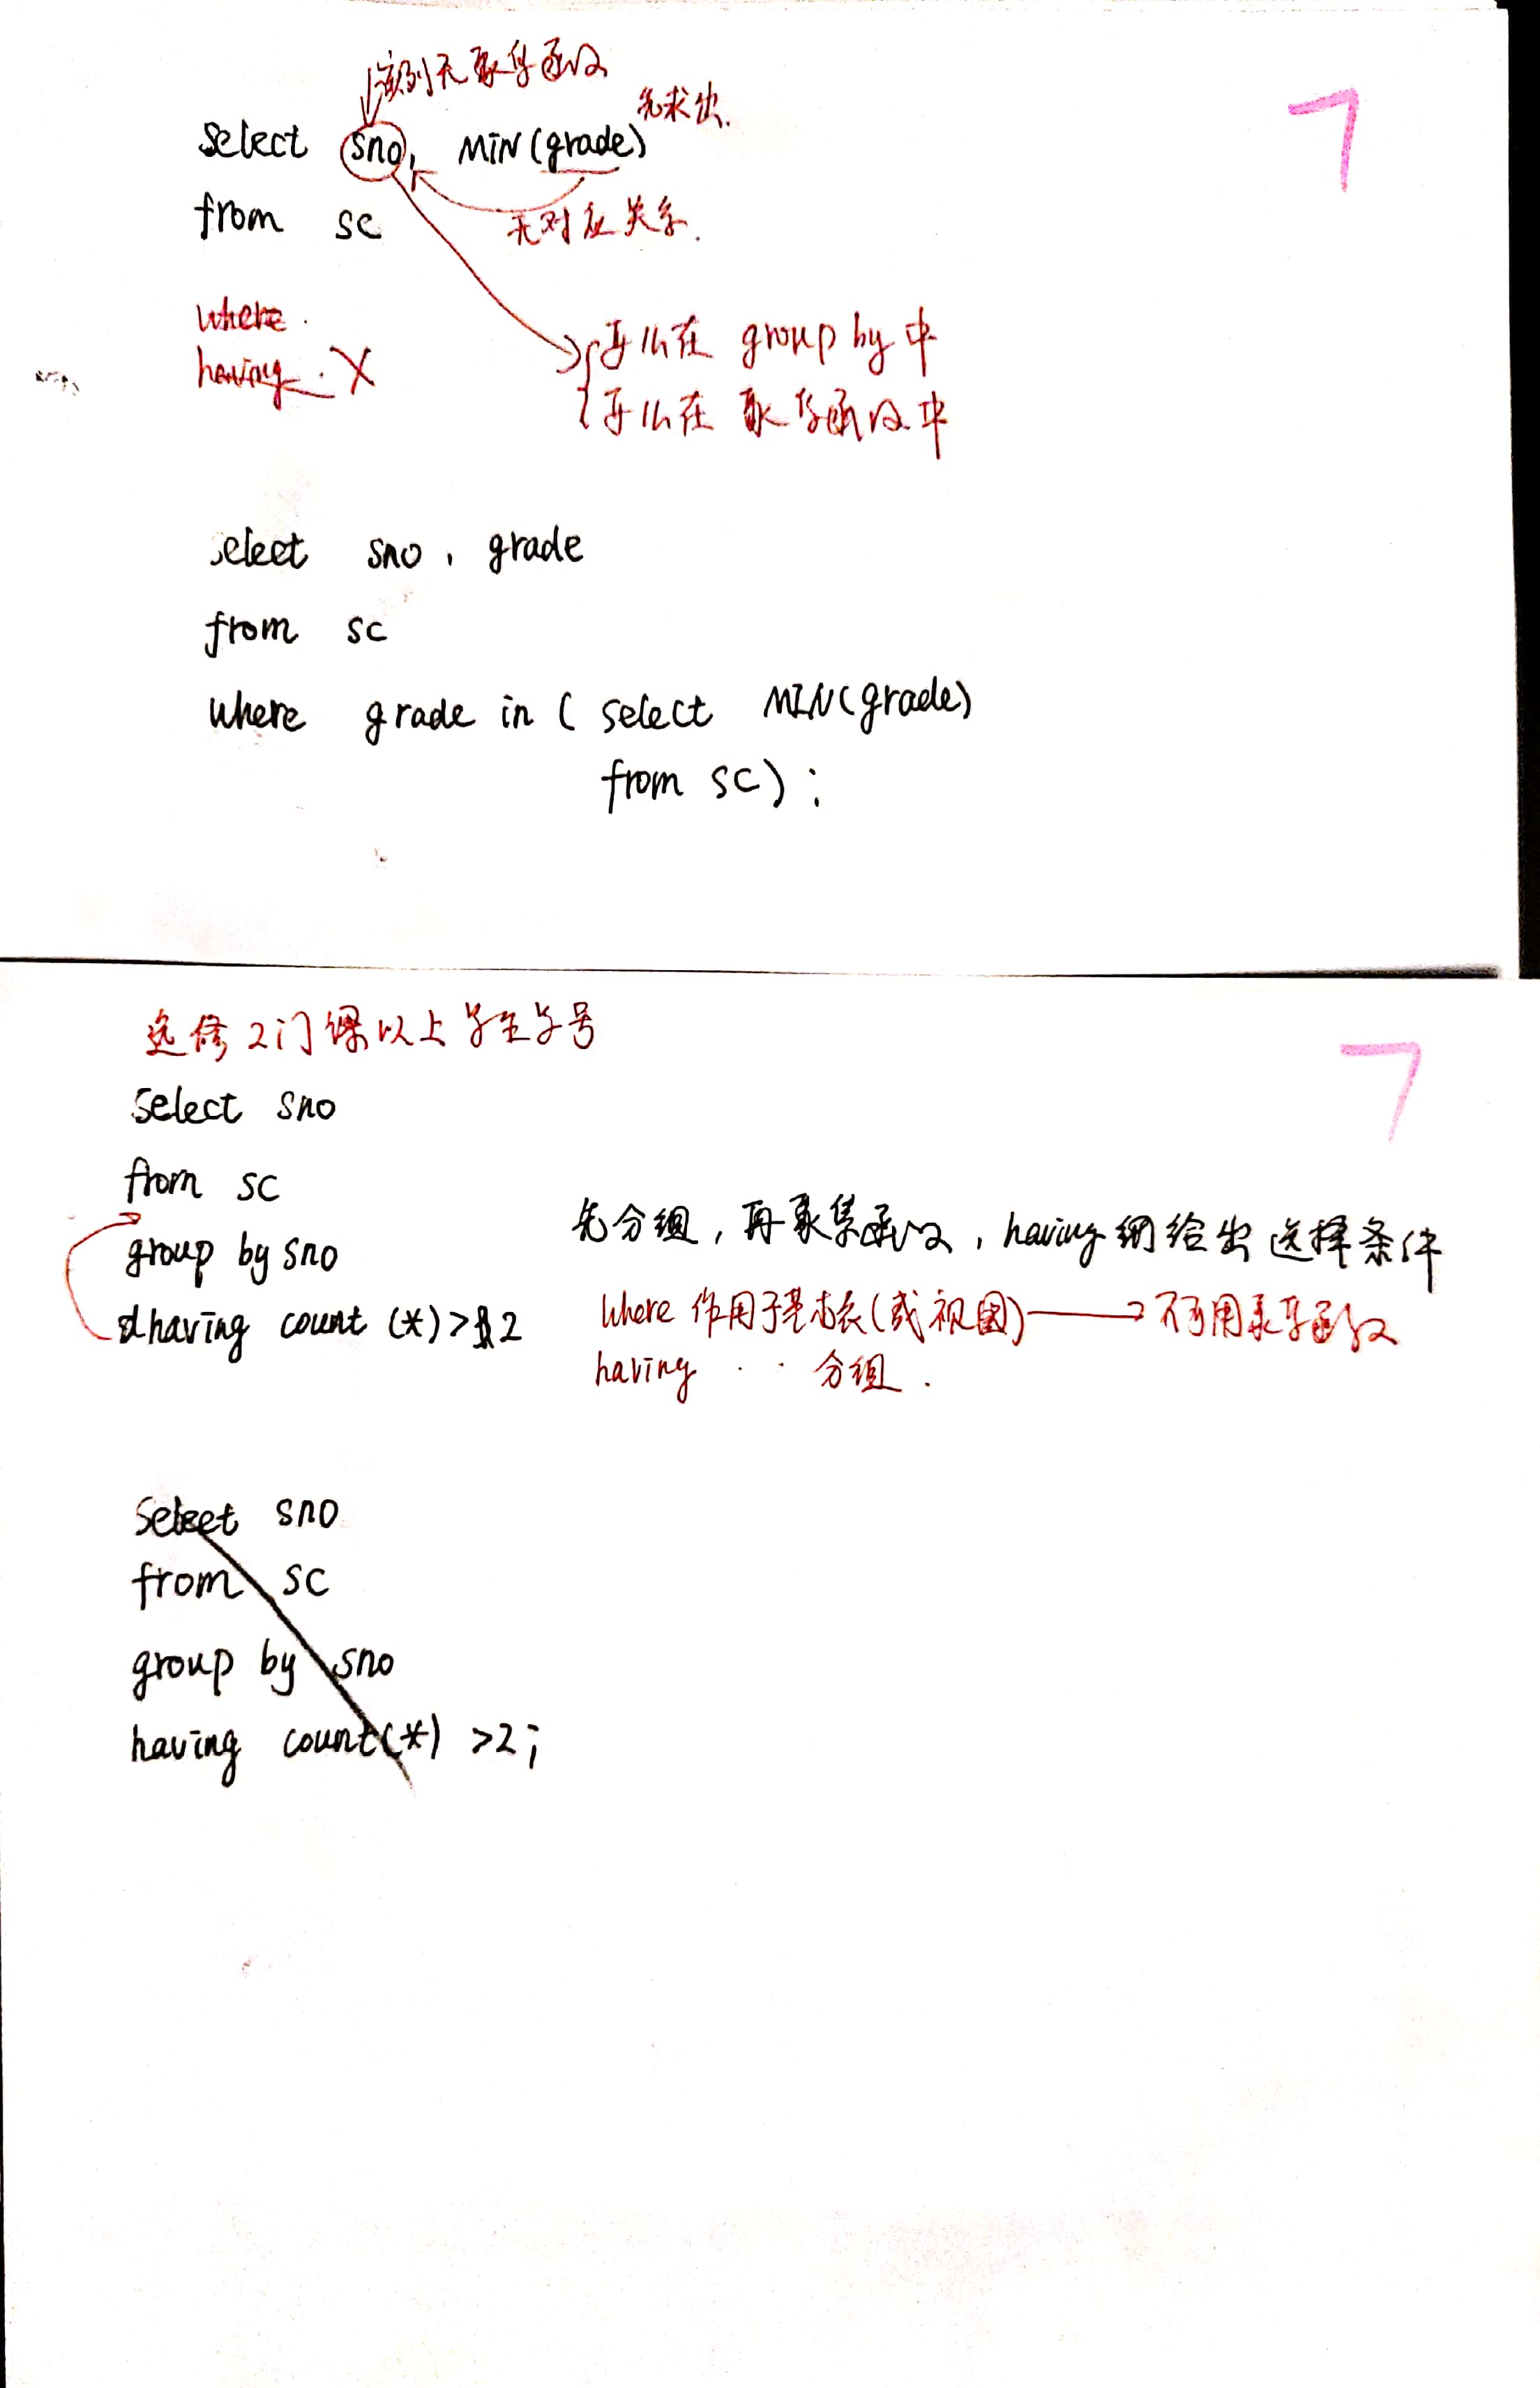 该列无聚集函数
先求出.
7
select sno, MIN(grade)
from sc
无对应关系.
where.
having. X
可以在 group by 中
可以在 聚集函数中
select sno, grade
from sc
where grade in ( select MIN(grade)
from sc);
选修2门课以上学生学号
7
select sno
from sc
group by sno
having count (*)>2
先分组,再聚集函数,having 给出选择条件
where 作用于基本表(或视图)——→不可用聚集函数
having · · 分组.
select sno
from sc
group by sno
having count(*) >2;